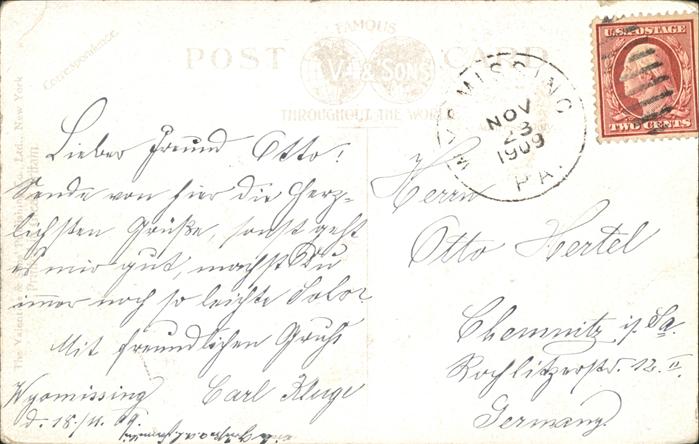 Correspondence.
FAMOUS
POST CARD
V. & SONS
THROUGHOUT THE WORLD
The Valentine & Co., Ltd., New York
Printed in
U.S. POSTAGE
TWO CENTS
WYOMISSING
NOV
23
1909
PA.
Lieber Freund Otto!
Sende von hier die herz-
lichsten Grüße, sonst geht
es mir gut, machst Du
immer noch so leichte Solos
Mit freundlichen Gruß
Wyomissing Carl Kluge
d. 18/11. 09.
Herrn
Otto Hertel
Chemnitz i/Sa.
Rochlitzerstr. 12 II
Germany.